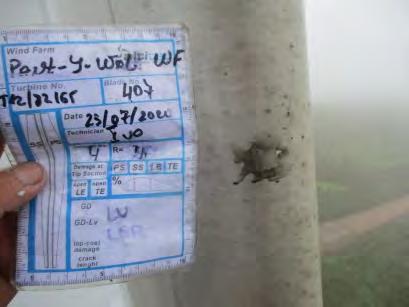 Wind Farm
Pant-Y-Wal WF
Turbine No.
Blade No.
407
Date 23/07/2020
Technician IVO
SS PS
4 R=
Damage at
Tip Section
PS SS LE TE
open LE
open TE
%
GD
LV
GD-Lv
LER
top-coat
damage
crack
lenght